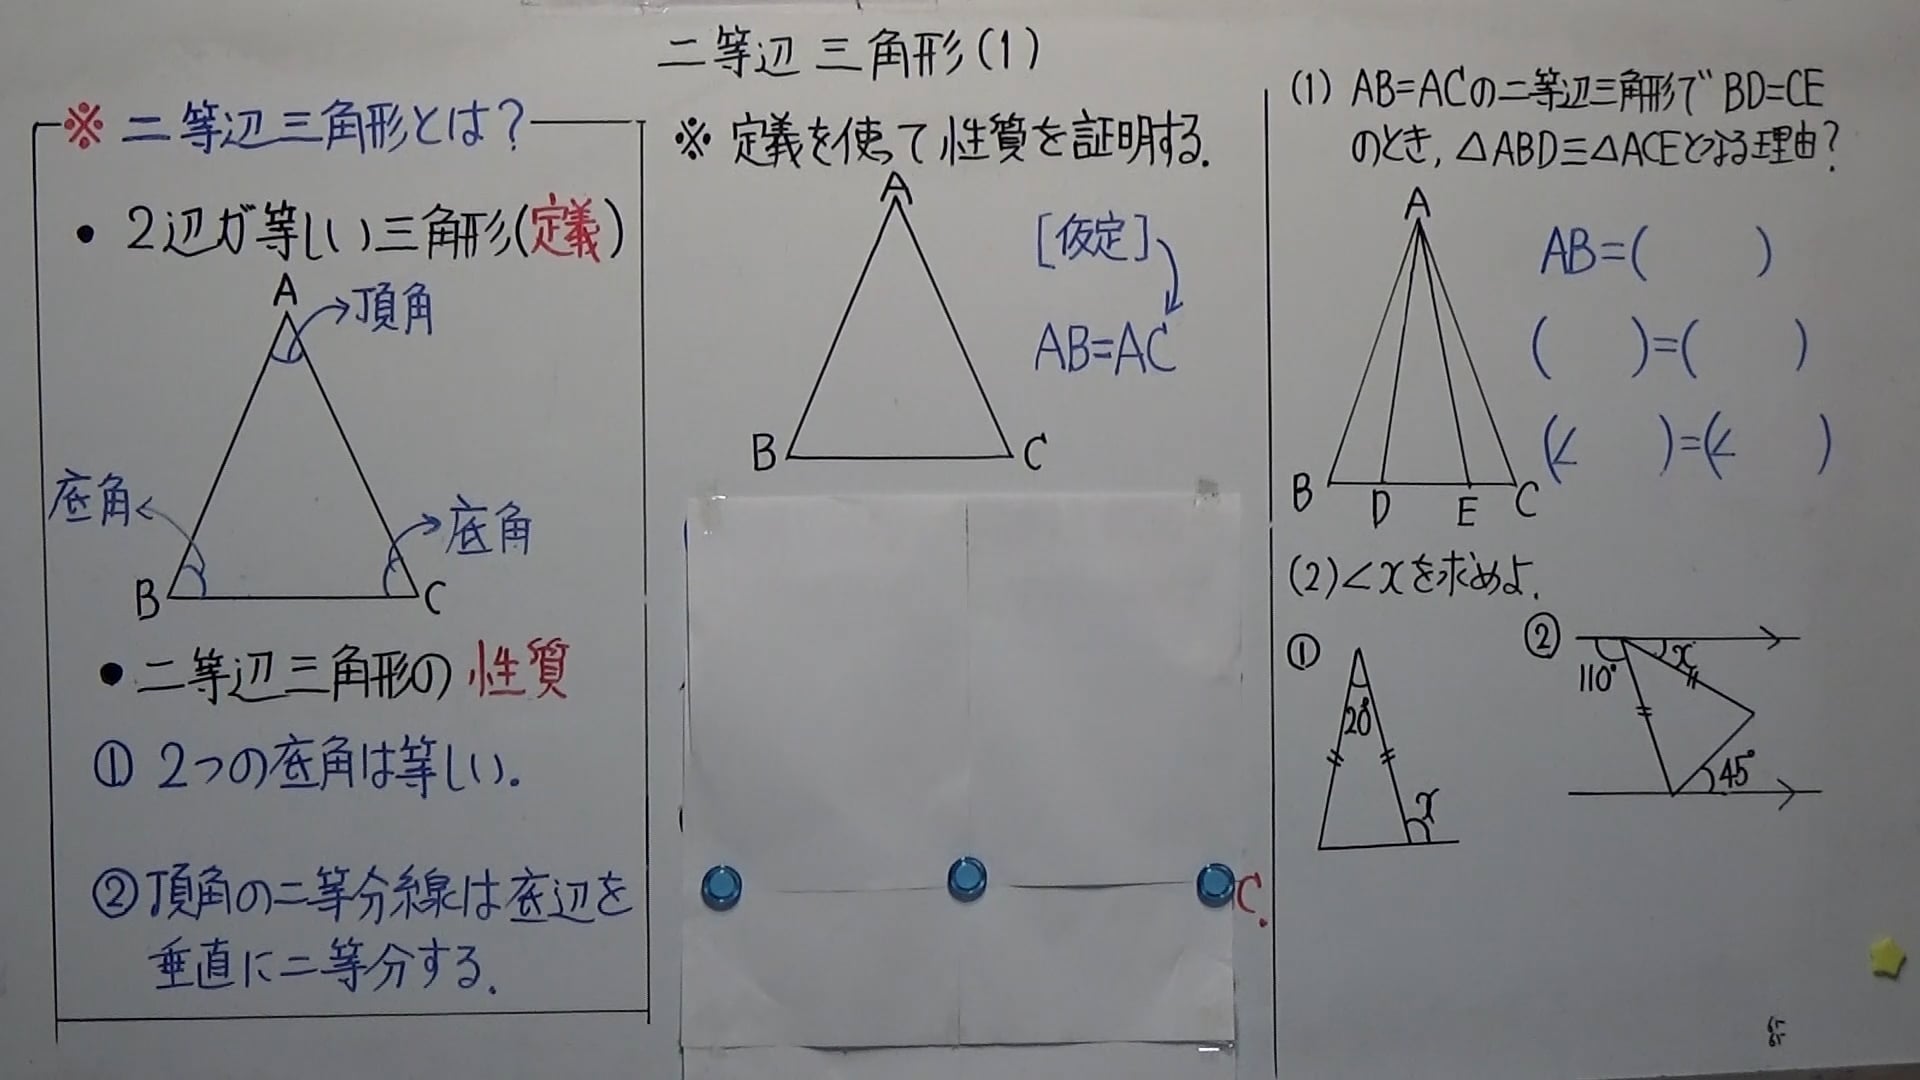 二等辺三角形(1)
※二等辺三角形とは?
• 2辺が等しい三角形(定義)
A
頂角
底角
底角
B
C
• 二等辺三角形の性質
① 2つの底角は等しい.
② 頂角の二等分線は底辺を
垂直に二等分する.
※ 定義を使って性質を証明する.
A
[仮定]
AB=AC
B
C
C.
(1) AB=ACの二等辺三角形でBD=CE
のとき, △ABD≡△ACEとなる理由?
A
AB=( )
( )=( )
(∠ )=(∠ )
B
D
E
C
(2)∠xを求めよ.
①
20°
x
②
110°
x
45°